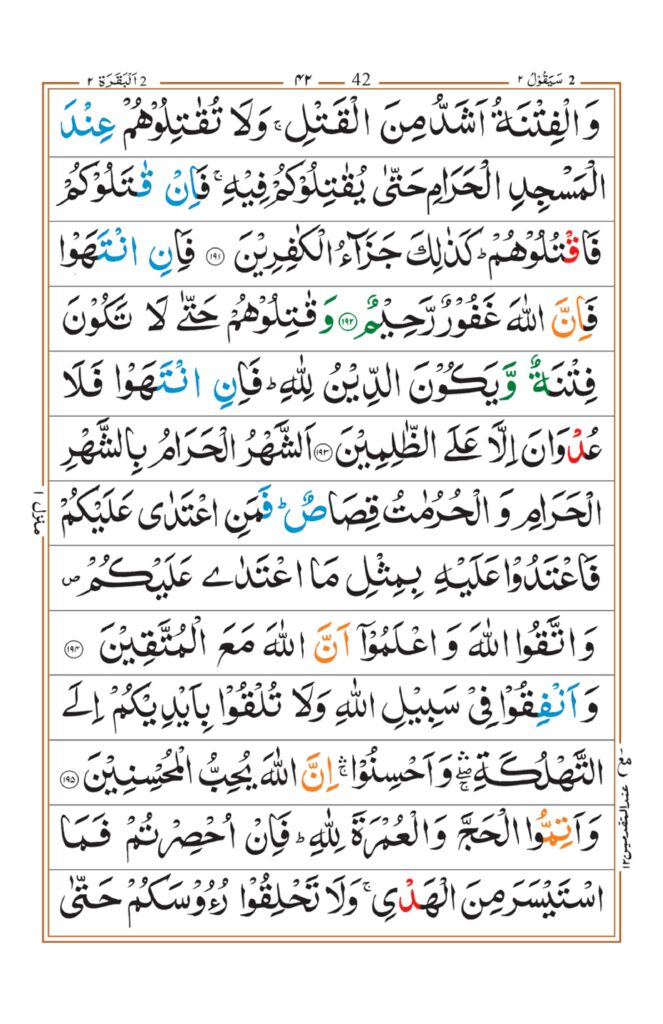 2 سَيَقُوْلُ ٢ 42 ۴۲ 2 اَلْبَقَرَة ٢
وَالْفِتْنَةُ اَشَدُّ مِنَ الْقَتْلِ ۚ وَلَا تُقٰتِلُوْهُمْ عِنْدَ
الْمَسْجِدِ الْحَرَامِ حَتّٰى يُقٰتِلُوْكُمْ فِيْهِ ۚ فَاِنْ قٰتَلُوْكُمْ
فَاقْتُلُوْهُمْ ؕ كَذٰلِكَ جَزَآءُ الْكٰفِرِيْنَ ﴿۱۹۱﴾ فَاِنِ انْتَهَوْا
فَاِنَّ اللّٰهَ غَفُوْرٌ رَّحِيْمٌ ﴿۱۹۲﴾ وَقٰتِلُوْهُمْ حَتّٰى لَا تَكُوْنَ
فِتْنَةٌ وَّيَكُوْنَ الدِّيْنُ لِلّٰهِ ؕ فَاِنِ انْتَهَوْا فَلَا
عُدْوَانَ اِلَّا عَلَى الظّٰلِمِيْنَ ﴿۱۹۳﴾ اَلشَّهْرُ الْحَرَامُ بِالشَّهْرِ
الْحَرَامِ وَالْحُرُمٰتُ قِصَاصٌ ؕ فَمَنِ اعْتَدٰى عَلَيْكُمْ
فَاعْتَدُوْا عَلَيْهِ بِمِثْلِ مَا اعْتَدٰى عَلَيْكُمْ ۖ
وَاتَّقُوا اللّٰهَ وَاعْلَمُوْۤا اَنَّ اللّٰهَ مَعَ الْمُتَّقِيْنَ ﴿۱۹۴﴾
وَاَنْفِقُوْا فِيْ سَبِيْلِ اللّٰهِ وَلَا تُلْقُوْا بِاَيْدِيْكُمْ اِلَى
التَّهْلُكَةِ ۛۖۚ وَاَحْسِنُوْا ۛۚ اِنَّ اللّٰهَ يُحِبُّ الْمُحْسِنِيْنَ ﴿۱۹۵﴾
وَاَتِمُّوا الْحَجَّ وَالْعُمْرَةَ لِلّٰهِ ؕ فَاِنْ اُحْصِرْتُمْ فَمَا
اسْتَيْسَرَ مِنَ الْهَدْيِ ۚ وَلَا تَحْلِقُوْا رُءُوْسَكُمْ حَتّٰى
منزل ۱
عند المتقدمين ۱۲